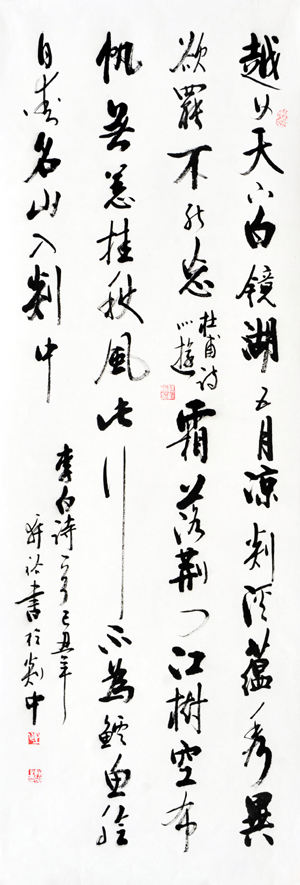 越女天下白鏡湖五月涼剡溪蘊秀異
欲罷不能忘
杜甫詩
壯遊
霜落荆門江樹空布
帆無恙挂秋風此行不為鱸魚鱠
自愛名山入剡中
李白詩一首己丑年
書於剡中